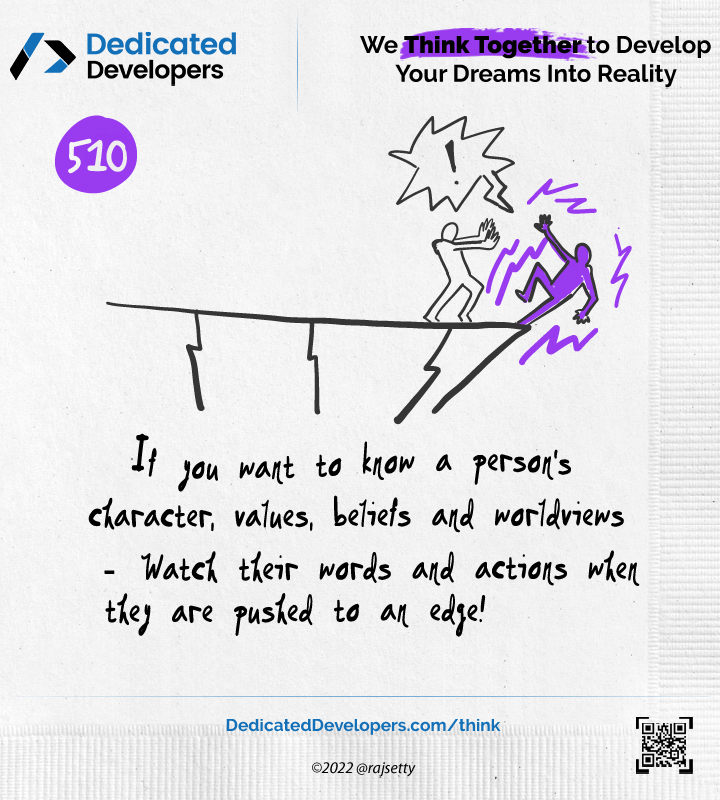 Dedicated
Developers
We Think Together to Develop
Your Dreams Into Reality
510
!
If you want to know a person's
character, values, beliefs and worldviews
- Watch their words and actions when
they are pushed to an edge!
DedicatedDevelopers.com/think
©2022 @rajsetty